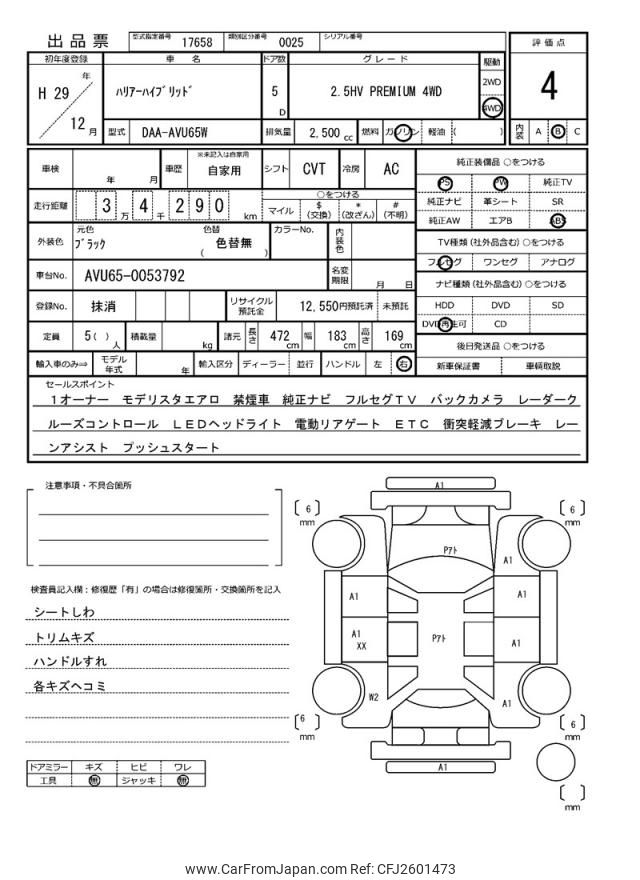 出品票
型式指定番号 17658 類別区分番号 0025 シリアル番号
初年度登録 車 名 ドア数 グレード 駆動 評価点
H 29 年 12 月
ハリアーハイブリッド
5 D
2.5HV PREMIUM 4WD
2WD
4WD
4
型式 DAA-AVU65W 排気量 2,500 cc 燃料 ガソリン 軽油 ( ) 内装 A B C
車検 年 月 車歴 ※未記入は自家用 自家用 シフト CVT 冷房 AC
走行距離 3万4千290 km
○をつける
マイル $(交換) *(改ざん) #(不明)
外装色 元色 ブラック 色替 ( 色替無 ) カラーNo. 内装色
車台No. AVU65-0053792 名変期限 月 日
登録No. 抹消 リサイクル預託金 12,550円預託済 未預託
定員 5( ) 人 積載量 kg 諸元 長さ 472 cm 幅 183 cm 高さ 169 cm
輸入車のみ⇒ モデル年式 年 輸入区分 ディーラー 並行 ハンドル 左 右
純正装備品 ○をつける
PS PW 純正TV
純正ナビ 革シート SR
純正AW エアB ABS
TV種類(社外品含む)○をつける
フルセグ ワンセグ アナログ
ナビ種類(社外品含む)○をつける
HDD DVD SD
DVD再生可 CD
後日発送品 ○をつける
新車保証書 車輌取説
セールスポイント
1オーナー モデリスタエアロ 禁煙車 純正ナビ フルセグTV バックカメラ レーダーク
ルーズコントロール LEDヘッドライト 電動リアゲート ETC 衝突軽減ブレーキ レー
ンアシスト プッシュスタート
注意事項・不具合箇所
検査員記入欄:修復歴「有」の場合は修復箇所・交換箇所を記入
シートしわ
トリムキズ
ハンドルすれ
各キズヘコミ
ドアミラー キズ ヒビ ワレ
工具 無 ジャッキ 無
A1
[ 6 ] mm
[ 6 ] mm
Pアト
A1
A1
A1
A1
XX
Pアト
A1
W2
A1
[ 6 ] mm
[ 6 ] mm
A1
[ ] mm
www.CarFromJapan.com Ref: CFJ2601473